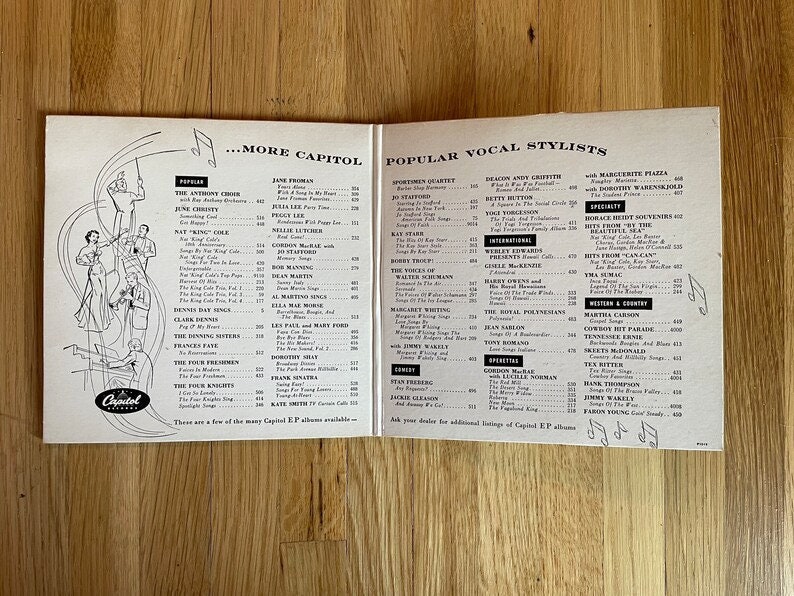 ...MORE CAPITOL
POPULAR
THE ANTHONY CHOIR
with Ray Anthony Orchestra .. 442
JUNE CHRISTY
Something Cool ........ 516
Get Happy! ........ 448
NAT "KING" COLE
Nat 'King' Cole's
10th Anniversary ........ 514
Songs By Nat 'King' Cole .... 500
Nat 'King' Cole
Songs For Two In Love .. 420
Unforgettable ........ 357
Nat 'King' Cole's Top Pops .. 9110
Harvest Of Hits ........ 213
The King Cole Trio, Vol. 1 .... 220
The King Cole Trio, Vol. 3 .... 59
The King Cole Trio, Vol. 4 .... 117
DENNIS DAY SINGS ........ 5
CLARK DENNIS
Peg O' My Heart ........ 205
THE DINNING SISTERS .... 318
FRANCES FAYE
No Reservations ........ 512
THE FOUR FRESHMEN
Voices in Modern ........ 522
The Four Freshmen ........ 433
THE FOUR KNIGHTS
I Get So Lonely ........ 506
The Four Knights Sing .... 414
Spotlight Songs ........ 346
JANE FROMAN
Yours Alone ........ 354
With A Song In My Heart .... 309
Jane Froman Favorites ........ 429
JULIA LEE Party Time ........ 228
PEGGY LEE
Rendezvous With Peggy Lee .. 151
NELLIE LUTCHER
Real Gone! ........ 232
GORDON MacRAE with
JO STAFFORD
Memory Songs ........ 428
BOB MANNING ........ 279
DEAN MARTIN
Sunny Italy ........ 481
Dean Martin Sings ........ 401
AL MARTINO SINGS ........ 405
ELLA MAE MORSE
Barrelhouse, Boogie, And
-The Blues ........ 513
LES PAUL and MARY FORD
Vaya Con Dios ........ 495
Bye Bye Blues ........ 356
The Hit Makers! ........ 416
The New Sound, Vol. 2 .... 286
DOROTHY SHAY
Broadway Ditties ........ 517
The Park Avenue Hillbillie .. 444
FRANK SINATRA
Swing Easy! ........ 528
Songs For Young Lovers .... 488
Young-At-Heart ........ 510
KATE SMITH TV Curtain Calls 515
Capitol
RECORDS
These are a few of the many Capitol EP albums available—
POPULAR VOCAL STYLISTS
SPORTSMEN QUARTET
Barber Shop Harmony .... 165
JO STAFFORD
Starring Jo Stafford ........ 435
Autumn In New York ........ 197
Jo Stafford Sings
American Folk Songs .... 75
Songs Of Faith ........ 9014
KAY STARR
The Hits Of Kay Starr ...... 415
The Kay Starr Style ........ 363
Songs By Kay Starr ........ 211
BOBBY TROUP! ........ 484
THE VOICES OF
WALTER SCHUMANN
Romance In The Air ........ 317
Serenade ........ 434
The Voices Of Walter Schumann 297
Songs Of The Ivy League .... 265
MARGARET WHITING
Margaret Whiting Sings .... 734
Love Songs By
Margaret Whiting ........ 410
Margaret Whiting Sings The
Songs Of Rodgers And Hart 209
with JIMMY WAKELY
Margaret Whiting and
Jimmy Wakely Sing .... 403
COMEDY
STAN FREBERG
Any Requests? ........ 496
JACKIE GLEASON
And Awaaay We Go! ........ 511
DEACON ANDY GRIFFITH
What It Was Was Football —
Romeo And Juliet ........ 498
BETTY HUTTON
A Square In The Social Circle 256
YOGI YORGESSON
The Trials And Tribulations
Of Yogi Yorgesson ........ 411
Yogi Yorgesson's Family Album 336
INTERNATIONAL
WEBLEY EDWARDS
PRESENTS Hawaii Calls .... 470
GISELE MacKENZIE
J'Attendrai ........ 430
HARRY OWENS and
His Royal Hawaiians
Voice Of The Trade Winds .... 333
Songs Of Hawaii ........ 268
Hawaii ........ 238
THE ROYAL POLYNESIANS
Polynesia! ........ 483
JEAN SABLON
Songs Of A Boulevardier .... 344
TONY ROMANO
Love Songs Italiano ........ 478
OPERETTAS
GORDON MacRAE
with LUCILLE NORMAN
The Red Mill ........ 530
The Desert Song ........ 351
The Merry Widow ........ 335
Roberta ........ 334
New Moon ........ 217
The Vagabond King ........ 218
Ask your dealer for additional listings of Capitol EP albums
with MARGUERITE PIAZZA
Naughty Marietta ........ 468
with DOROTHY WARENSKJOLD
The Student Prince ........ 407
SPECIALTY
HORACE HEIDT SOUVENIRS 402
HITS FROM "BY THE
BEAUTIFUL SEA"
Nat 'King' Cole, Les Baxter
Chorus, Gordon MacRae &
June Hutton, Helen O'Connell 535
HITS FROM "CAN-CAN"
Nat 'King' Cole, Kay Starr,
Les Baxter, Gordon MacRae 482
YMA SUMAC
Inca Taqui ........ 423
Legend Of The Sun Virgin .. 299
Voice Of The Xtabay ........ 244
WESTERN & COUNTRY
MARTHA CARSON
Gospel Songs ........ 449
COWBOY HIT PARADE .... 4000
TENNESSEE ERNIE
Backwoods Boogies And Blues 413
SKEETS McDONALD
Country And Hillbilly Songs.. 451
TEX RITTER
Tex Ritter Sings ........ 431
Cowboy Favorites ........ 4004
HANK THOMPSON
Songs Of The Brazos Valley .. 418
JIMMY WAKELY
Songs Of The West ........ 4008
FARON YOUNG Goin' Steady .. 450